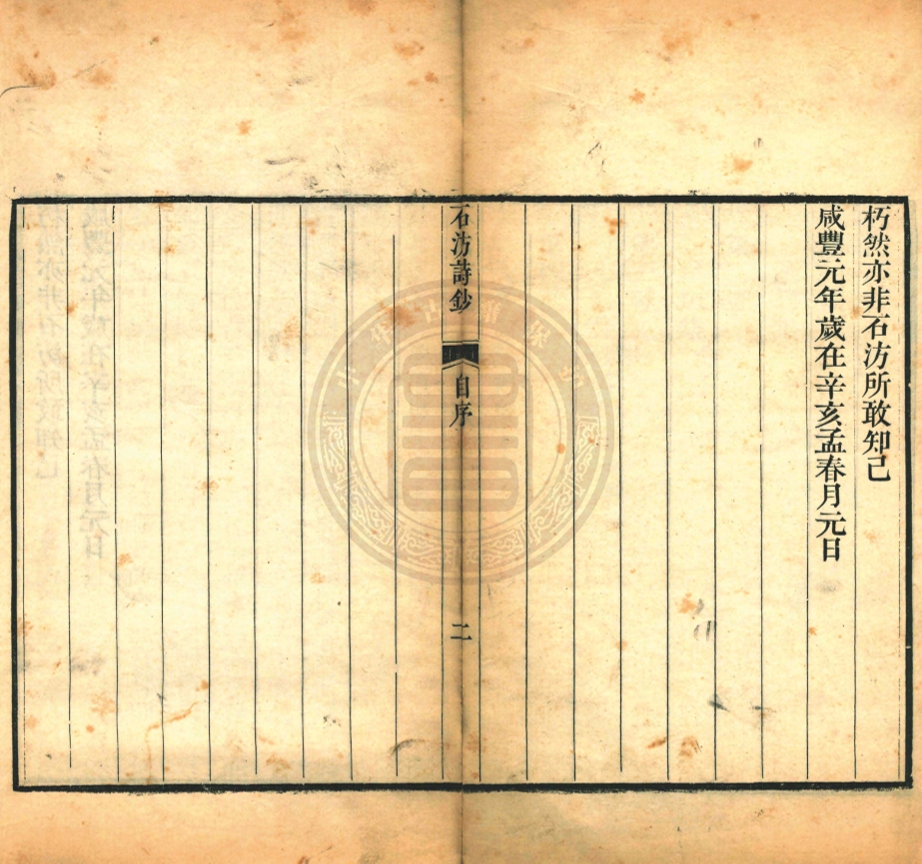 朽然亦非石汸所敢知己
咸豐元年歲在辛亥孟春月元日
石汸詩鈔
自序
二